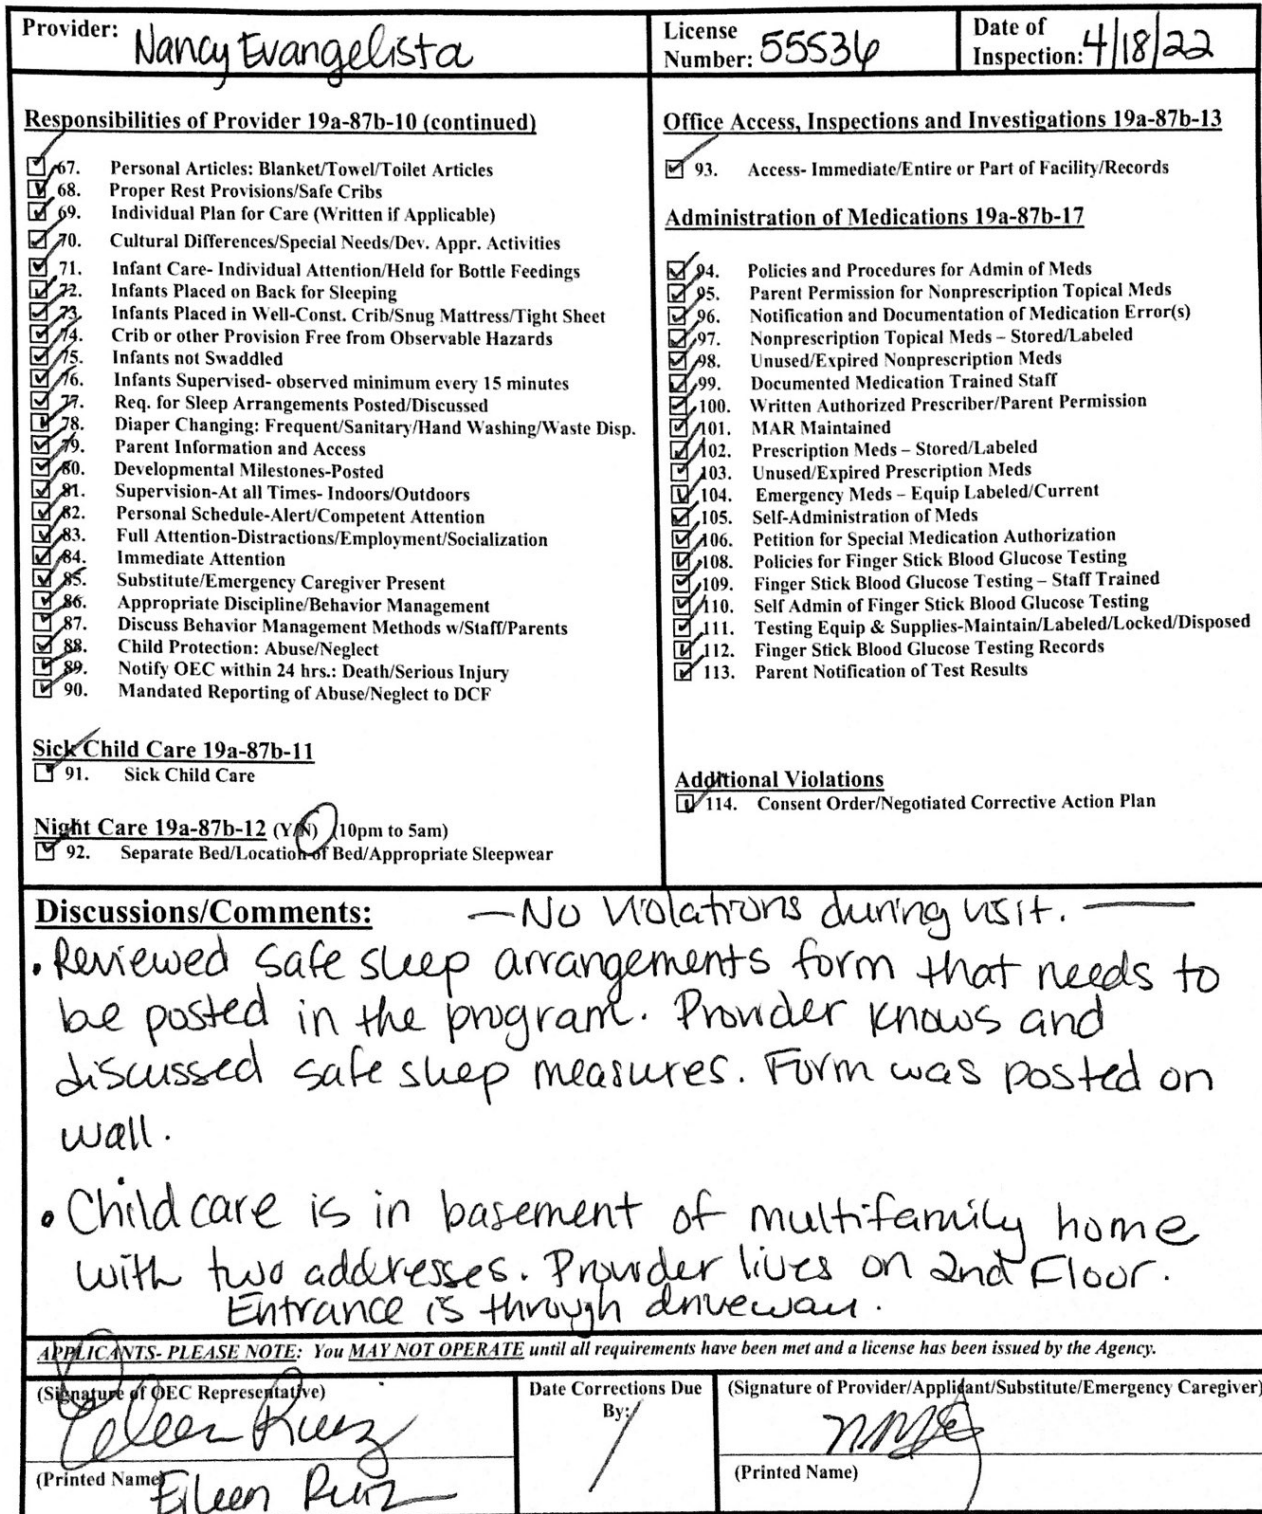 Provider: Nancy Evangelista
License Number: 55536
Date of Inspection: 4/18/22
Responsibilities of Provider 19a-87b-10 (continued)
67. Personal Articles: Blanket/Towel/Toilet Articles
68. Proper Rest Provisions/Safe Cribs
69. Individual Plan for Care (Written if Applicable)
70. Cultural Differences/Special Needs/Dev. Appr. Activities
71. Infant Care- Individual Attention/Held for Bottle Feedings
72. Infants Placed on Back for Sleeping
73. Infants Placed in Well-Const. Crib/Snug Mattress/Tight Sheet
74. Crib or other Provision Free from Observable Hazards
75. Infants not Swaddled
76. Infants Supervised- observed minimum every 15 minutes
77. Req. for Sleep Arrangements Posted/Discussed
78. Diaper Changing: Frequent/Sanitary/Hand Washing/Waste Disp.
79. Parent Information and Access
80. Developmental Milestones-Posted
81. Supervision-At all Times- Indoors/Outdoors
82. Personal Schedule-Alert/Competent Attention
83. Full Attention-Distractions/Employment/Socialization
84. Immediate Attention
85. Substitute/Emergency Caregiver Present
86. Appropriate Discipline/Behavior Management
87. Discuss Behavior Management Methods w/Staff/Parents
88. Child Protection: Abuse/Neglect
89. Notify OEC within 24 hrs.: Death/Serious Injury
90. Mandated Reporting of Abuse/Neglect to DCF
Sick Child Care 19a-87b-11
91. Sick Child Care
Night Care 19a-87b-12 (Y/N) (10pm to 5am)
92. Separate Bed/Location of Bed/Appropriate Sleepwear
Office Access, Inspections and Investigations 19a-87b-13
93. Access- Immediate/Entire or Part of Facility/Records
Administration of Medications 19a-87b-17
94. Policies and Procedures for Admin of Meds
95. Parent Permission for Nonprescription Topical Meds
96. Notification and Documentation of Medication Error(s)
97. Nonprescription Topical Meds – Stored/Labeled
98. Unused/Expired Nonprescription Meds
99. Documented Medication Trained Staff
100. Written Authorized Prescriber/Parent Permission
101. MAR Maintained
102. Prescription Meds – Stored/Labeled
103. Unused/Expired Prescription Meds
104. Emergency Meds – Equip Labeled/Current
105. Self-Administration of Meds
106. Petition for Special Medication Authorization
108. Policies for Finger Stick Blood Glucose Testing
109. Finger Stick Blood Glucose Testing – Staff Trained
110. Self Admin of Finger Stick Blood Glucose Testing
111. Testing Equip & Supplies-Maintain/Labeled/Locked/Disposed
112. Finger Stick Blood Glucose Testing Records
113. Parent Notification of Test Results
Additional Violations
114. Consent Order/Negotiated Corrective Action Plan
Discussions/Comments: — No Violations during visit. —
• Reviewed safe sleep arrangements form that needs to
be posted in the program. Provider knows and
discussed safe sleep measures. Form was posted on
wall.
• Child care is in basement of multifamily home
with two addresses. Provider lives on 2nd Floor.
Entrance is through driveway.
APPLICANTS- PLEASE NOTE: You MAY NOT OPERATE until all requirements have been met and a license has been issued by the Agency.
(Signature of OEC Representative)
Eileen Ruiz
(Printed Name) Eileen Ruiz
Date Corrections Due
By: /
(Signature of Provider/Applicant/Substitute/Emergency Caregiver)
(Printed Name)